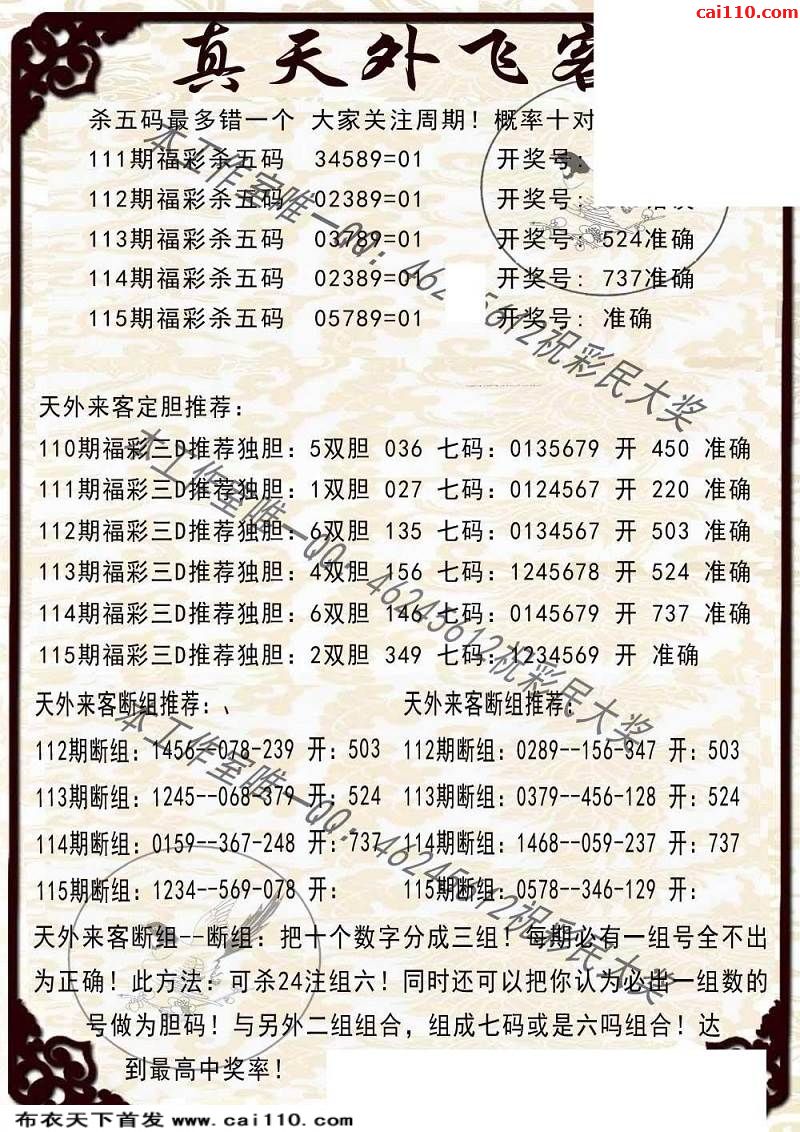 cai110.com
真天外飞客
杀五码最多错一个 大家关注周期！概率十对
111期福彩杀五码 34589=01 开奖号：
112期福彩杀五码 02389=01 开奖号：
113期福彩杀五码 03789=01 开奖号：524准确
114期福彩杀五码 02389=01 开奖号：737准确
115期福彩杀五码 05789=01 开奖号：准确
天外来客定胆推荐：
110期福彩三D推荐独胆：5双胆 036 七码：0135679 开 450 准确
111期福彩三D推荐独胆：1双胆 027 七码：0124567 开 220 准确
112期福彩三D推荐独胆：6双胆 135 七码：0134567 开 503 准确
113期福彩三D推荐独胆：4双胆 156 七码：1245678 开 524 准确
114期福彩三D推荐独胆：6双胆 146 七码：0145679 开 737 准确
115期福彩三D推荐独胆：2双胆 349 七码：1234569 开 准确
天外来客断组推荐：、 天外来客断组推荐：
112期断组：1456--078-239 开：503 112期断组：0289--156-347 开：503
113期断组：1245--068-379 开：524 113期断组：0379--456-128 开：524
114期断组：0159--367-248 开：737 114期断组：1468--059-237 开：737
115期断组：1234--569-078 开： 115期断组：0578--346-129 开：
天外来客断组--断组：把十个数字分成三组！每期必有一组号全不出
为正确！此方法：可杀24注组六！同时还可以把你认为必出一组数的
号做为胆码！与另外二组组合，组成七码或是六吗组合！达
到最高中奖率！
本工作室唯一QQ：46245612祝彩民大奖
本工作室唯一QQ：46245612祝彩民大奖
本工作室唯一QQ：46245612祝彩民大奖
布衣天下首发 www.cai110.com